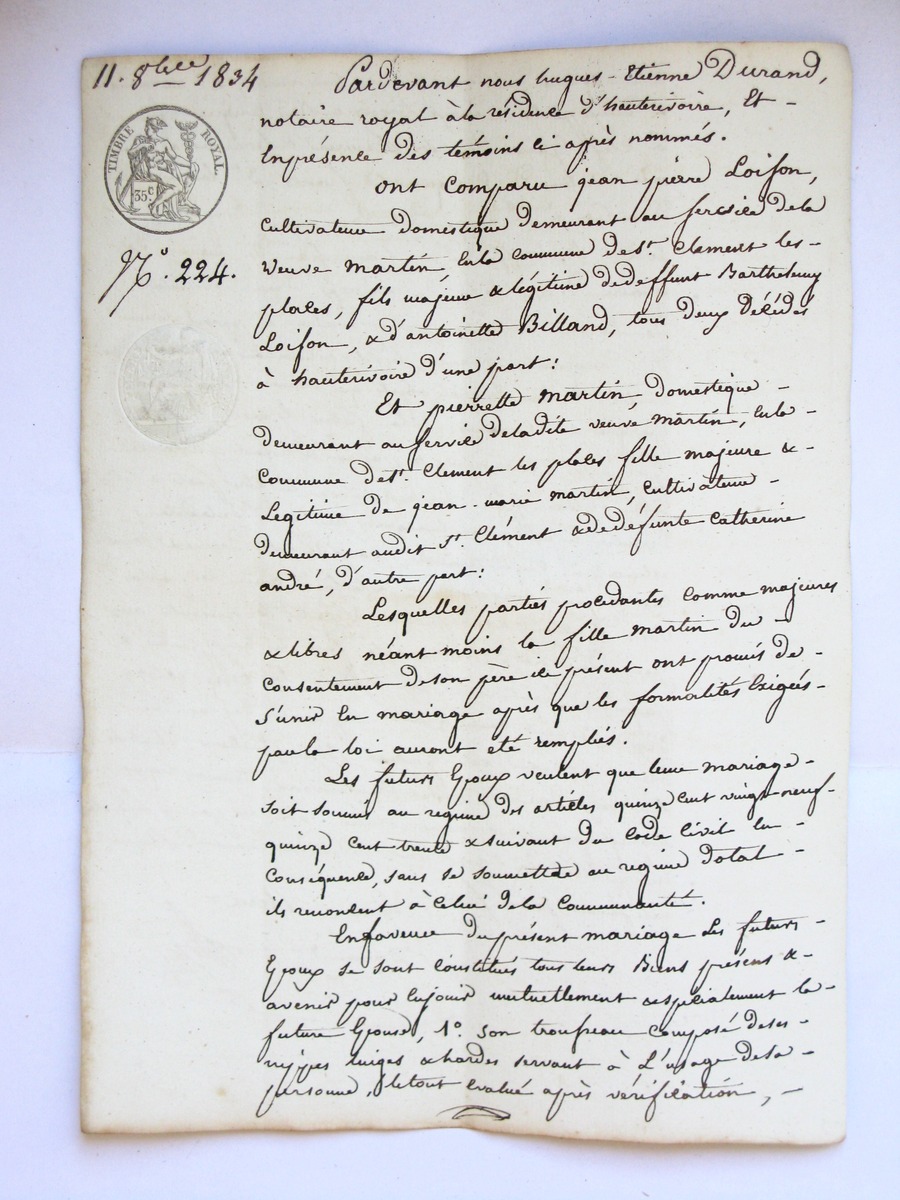 11. 8bre 1834
TIMBRE ROYAL.
35c
No. 224.
Pardevant nous hugues-Etienne Durand,
notaire royal à la résidence d'hauterivoire, Et -
En présence des témoins ci après nommés.
Ont comparu jean pierre Loison,
cultivateur domestique demeurant au service de la
veuve martin, en la commune de St. Clement les-
places, fils majeur & légitime de deffunt Barthelemy
Loison, & d'antoinette Billand, tous deux décédés
à hauterivoire d'une part:
Et pierrette martin domestique -
demeurant au service de la dite veuve martin, en la -
commune de St. Clement les places fille majeure & -
Legitime de jean-marie martin, cultivateur -
demeurant audit St. Clément & de défunte Catherine
andré, d'autre part:
Lesquelles parties procédantes comme majeures
& libres néant moins la fille martin du -
consentement de son père ici présent ont promis de -
s'unir En mariage après que les formalités Exigées -
par la loi auront eté remplies.
Les futurs Epoux veulent que leur mariage -
soit soumis au regime des articles quinze cent vingt neuf -
quinze cent trente & suivant du Code Civil En -
Conséquence, sans se soumettre au regime dotal -
ils renoncent à Celui de la Communauté.
En faveur du présent mariage Les futurs -
Epoux se sont Constitués tous leurs Biens présens & -
avenir pour En jouir mutuellement & spécialement la -
future Epouse, 1o. son trousseau composé de ses -
nippes linges & hardes servant à L'usage de sa -
personne, le tout évalué après vérification, -